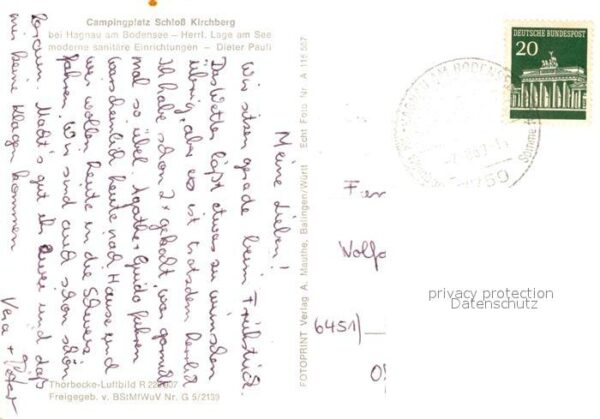 Campingplatz Schloß Kirchberg
bei Hagnau am Bodensee – Herrl. Lage am See
moderne sanitäre Einrichtungen – Dieter Pauli
Meine Lieben!
Wir sitzen gerade beim Frühstück.
Das Wetter läßt etwas zu wünschen
übrig, aber es ist trotzdem herrlich.
Ich habe schon 2x gebadet, war gar nicht
mal so übel. Agathe + Guido fahren
wahrscheinlich heute nach Hause und
wir wollen heute in die Schweiz
fahren. Wir sind auch schon schön
braun. Macht's gut ihr zwei und daß
mir keine Klagen kommen
Vera + Peter
Thorbecke-Luftbild R 22 907
Freigegeb. v. BStMfWuV Nr. G 5/2139
FOTOPRINT Verlag A. Mauthe, Balingen/Württ Echt Foto Nr. A 116 507
DEUTSCHE BUNDESPOST
20
HAGNAU AM BODENSEE
7759
Fam
Wolfg
6451
privacy protection
Datenschutz